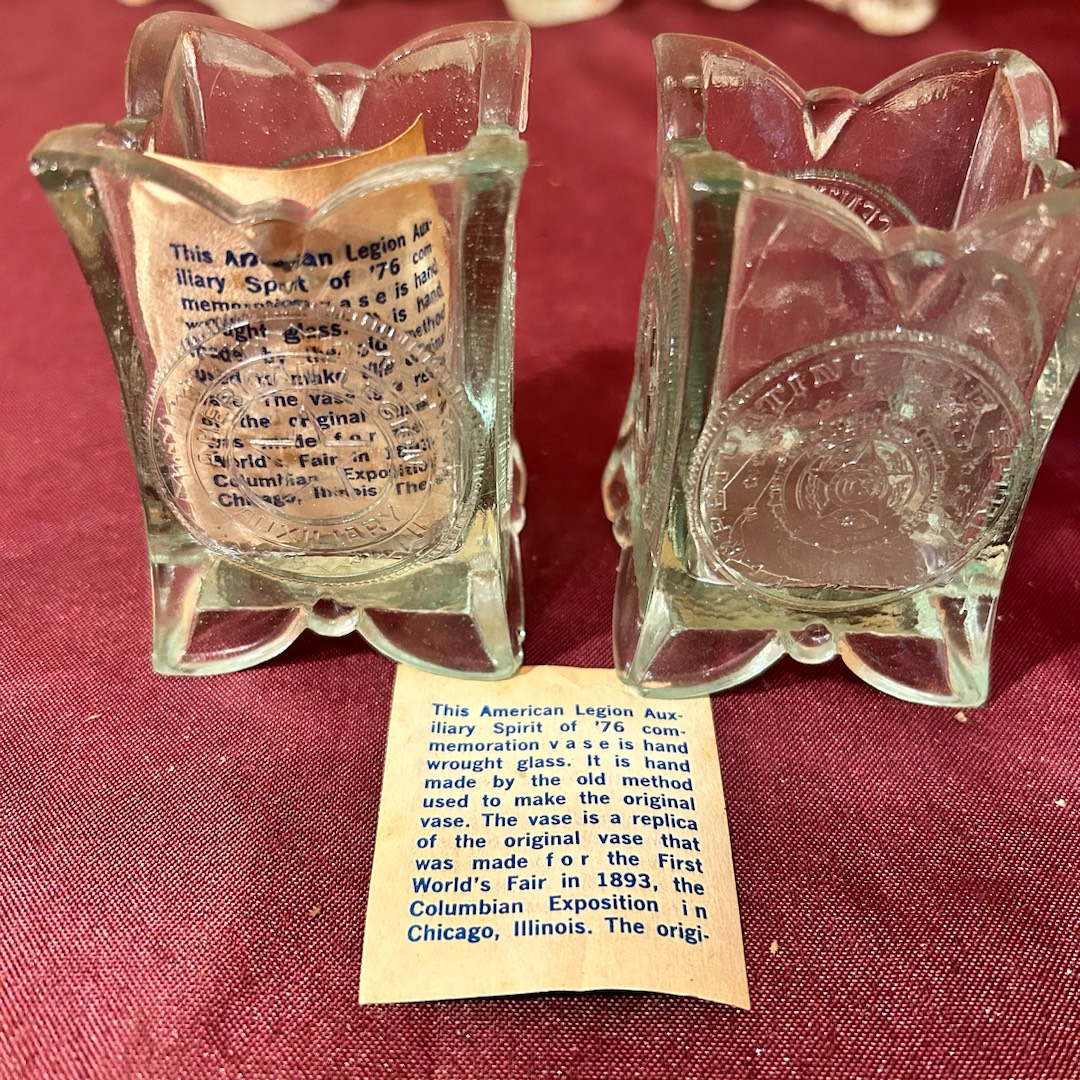 This American Legion Aux-
iliary Spirit of '76 com
memoration v a s e is hand
wrought glass. It is hand
made by the old method
used to make the original
vase. The vase is a
of the original
was made f o r
World's Fair in
Columbian Expositio
Chicago, Illinois The
AUXILIARY
This American Legion Aux-
iliary Spirit of '76 com-
memoration v a s e is hand
wrought glass. It is hand
made by the old method
used to make the original
vase. The vase is a replica
of the original vase that
was made f o r the First
World's Fair in 1893, the
Columbian Exposition i n
Chicago, Illinois. The origi-